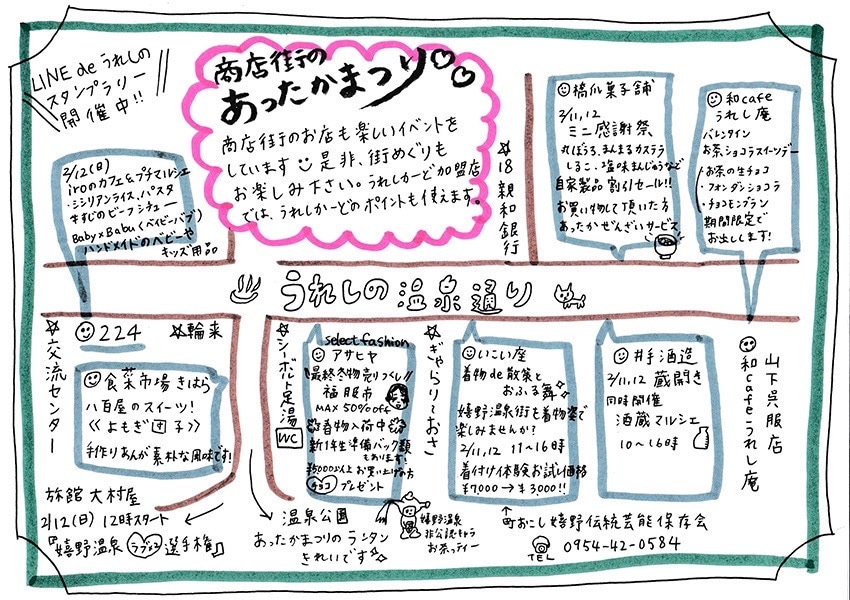 LINE de うれしの
スタンプラリー
開催中!!
商店街の
あったかまつり
商店街のお店も楽しいイベントを
しています是非、街めぐりも
お楽しみ下さい。うれしかーど加盟店
では、うれしかーどのポイントも使えます。
☆18親和銀行
橋爪菓子舗
2/11,12
ミニ感謝祭
丸ぼうろ、まんまるカステラ
しるこ・塩味まんじゅうなど
自家製品割引セール!!
お買い物して頂いた方
あったかぜんざいサービス
和cafe
うれし庵
バレンタイン
お茶ショコラスイーツデー
・お茶の生チョコ
・フォンダンショコラ
・チョコモンブラン
期間限定で
お出しします!
2/12(日)
iroのカフェ&プチマルシェ
・シシリアンライス、パスタ
牛すじのビーフシチュー
Baby×Babu(ベイビーバブ)
ハンドメイドのベビーや
キッズ用品
うれしの温泉通り
☆交流センター
224
☆輪来
食菜市場きはら
八百屋のスイーツ!
《よもぎ団子》
手作りあんが素朴な風味です!
旅館大村屋
2/12(日)12時スタート
『嬉野温泉ラブメン選手権』
☆シーボルト足湯
WC
select fashion
アサヒヤ
最終冬物売りつくし
福服市
MAX 50%off
着物入荷中
新1年生準備バック類
もあります!
¥5000以上お買上げの方
チョコプレゼント
☆ぎゃらりぃおさ
いこい座
着物de散策と
おふる舞
嬉野温泉街を着物姿で
楽しみませんか?
2/11,12 11~16時
着付け体験お試し価格
¥7,000→¥3,000!!
井手酒造
2/11,12 蔵開き
同時開催
酒蔵マルシェ
10~16時
山下呉服店
和cafeうれし庵
温泉公園
あったかまつりのランタン
きれいです
嬉野温泉
非公認キャラ
お茶っティー
↑町おこし嬉野伝統芸能保存会
TEL 0954-42-0584